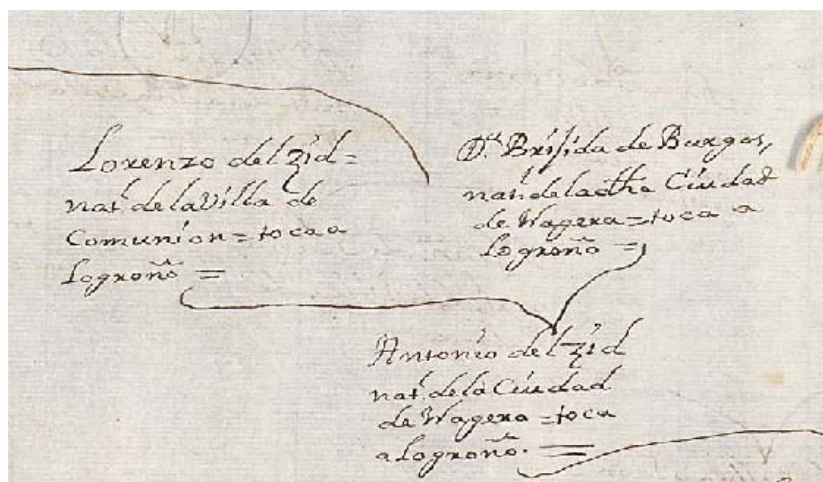 Lorenzo del Zid =
natl. de la Villa de
Comunion = toca a
Logroño =
Da. Brijida de Burgos,
natl. de la dha Ciudad
de Nagera = toca a
Logroño =
Antonio del Zid
natl. de la Ciudad
de Nagera = toca
a Logroño. =